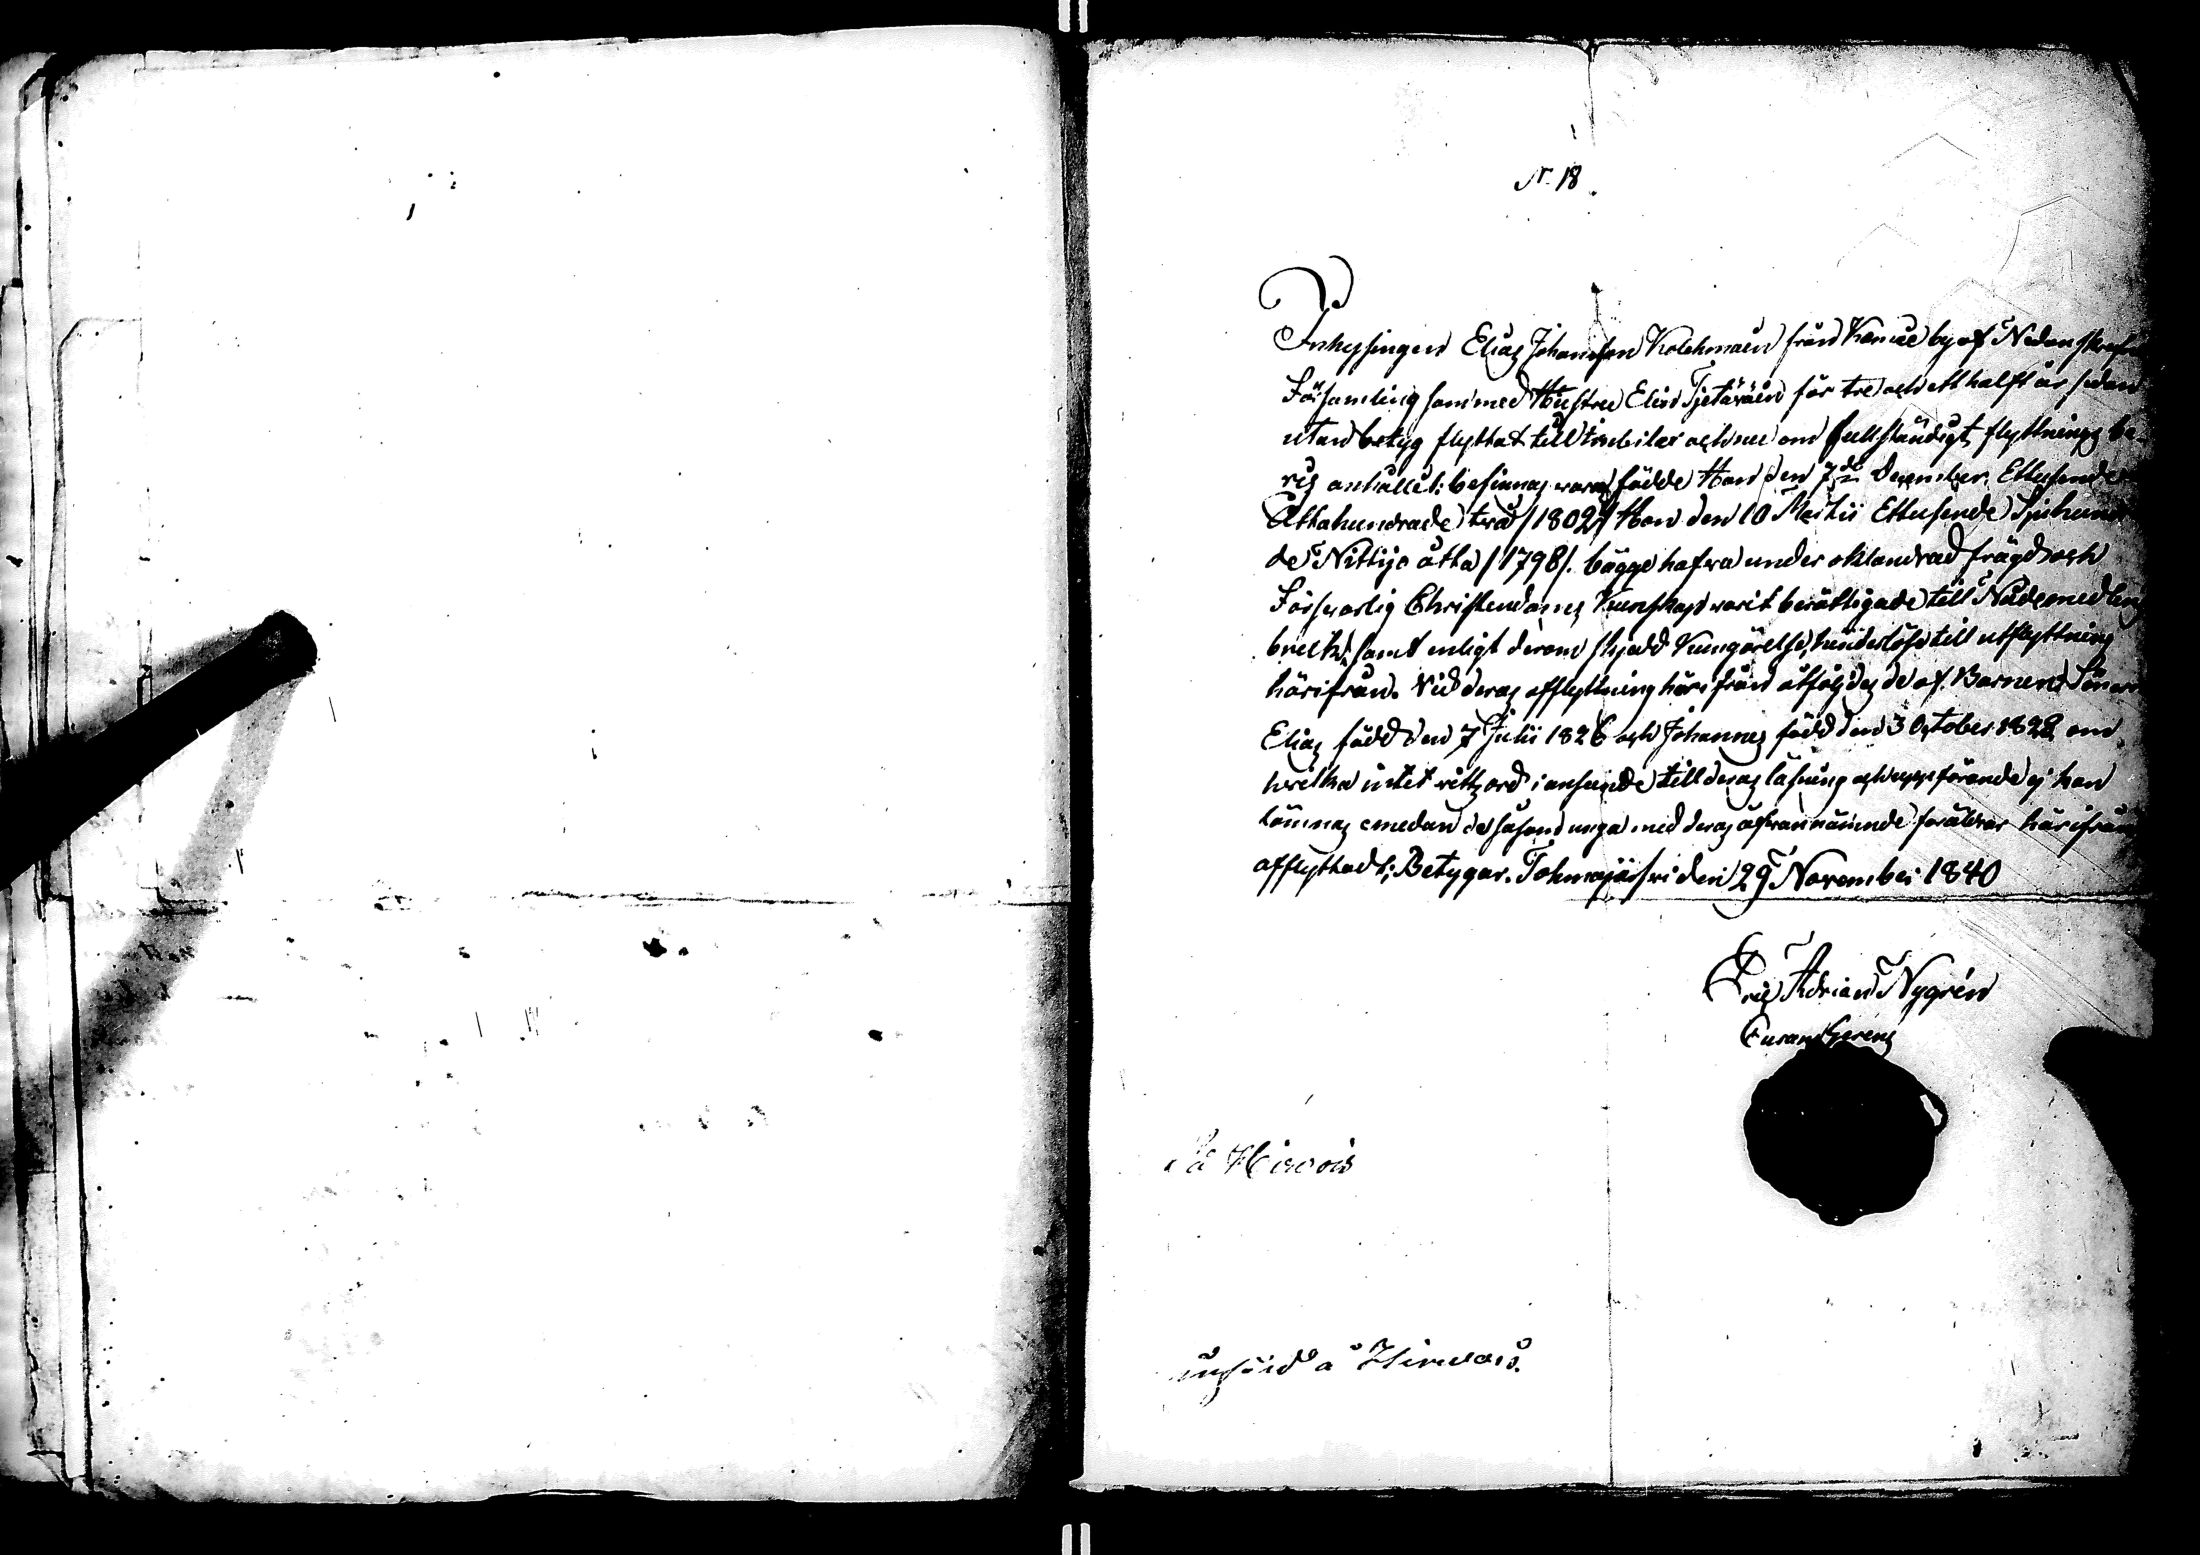 N. 18
Inhysingen Elias Johansson Kolehmain från Kemie by af Nedanskrefne
Församling som med Hustru Elin Tjetäväin för tre och ett halft år sedan
utan betyg flyttat till och nu om fullständigt flyttnings be-
vis anhållit; befinnas vara födde Han den 7de December Ettusende
Åttahundrade två /1802/ Hon den 10 Martii Ettusende Sjuhundra
de Nittijo åtta /1798/. bägge hafva under oklandrad frägd och
Försvarlig Christendoms Kunskap varit berättigade till Nådemedlens
bruk, samt enligt derom skjedd Kungörelse, hinderlöse till utflyttning
härifrån. Vid deras afflyttning härifrån åtföljdes de af Barnen Söner
Elias född den 7 Julii 1826 och Johannes född den 3 October 1828 om
hvilka intet vittzord i anseende till deras läsning och uppförande ej kan
lämnas emedan de såsom unga med deras ofvannämnde föräldrar härifrån
afflyttadt; Betygar. Tohmajärfvi den 29 November 1840
Eric Adrian Nygrén
å Hirvois
å Hirvois.